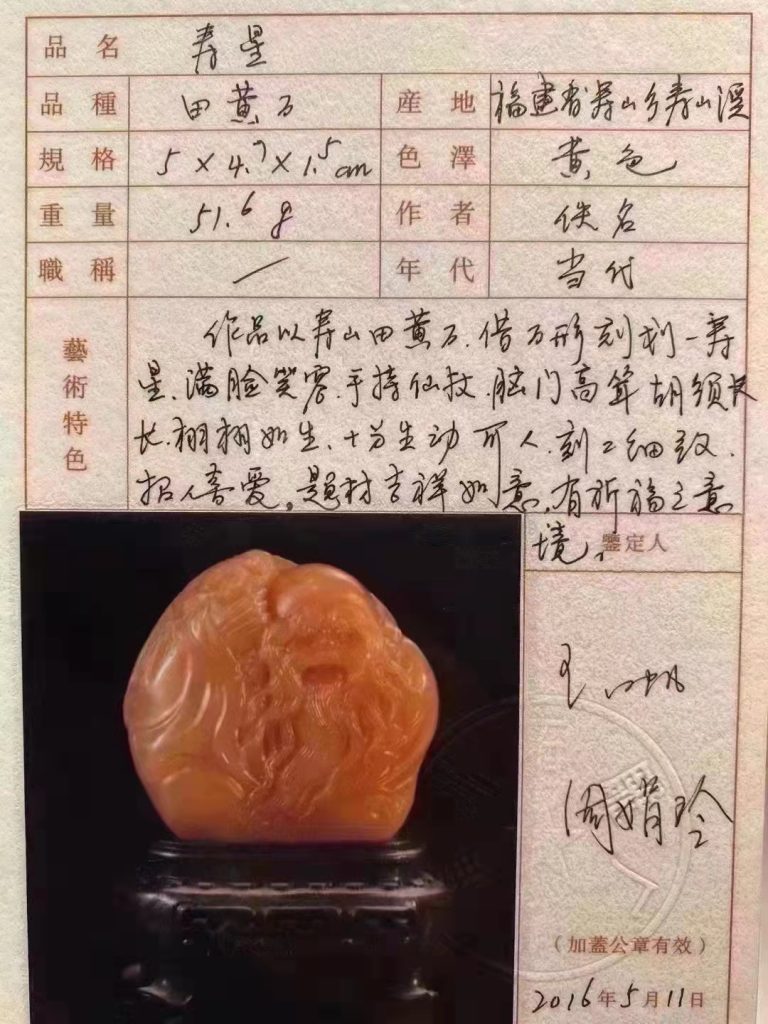 品名 寿星
品種 田黄石 産地 福建省寿山乡寿山溪
規格 5×4.7×1.5cm 色澤 黄色
重量 51.6g 作者 佚名
職稱 — 年代 当代
藝術特色
作品以寿山田黄石.借石形刻划一寿
星.满脸笑容.手持仙杖.脑门高耸胡须长
长.栩栩如生.十分生动可人.刻工细致.
招人喜爱。题材吉祥如意.有祈福之意
境。
鑒定人
周娟玲
（加蓋公章有效）
2016年5月11日